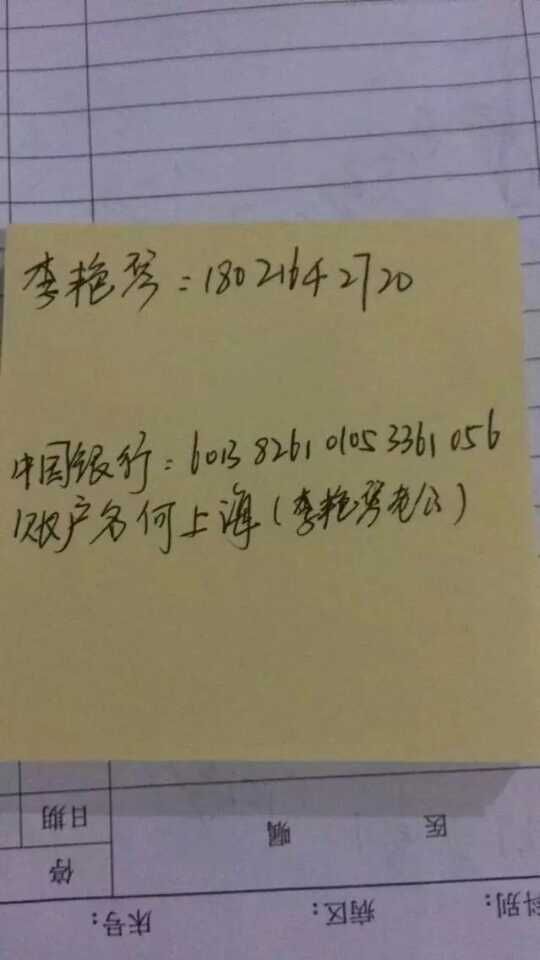 李艳琴：18021642720
中国银行：6013 8261 0105 3361 056
账户名何上海（李艳琴老公）
日期
医
嘱
停
科别：
病区：
床号：